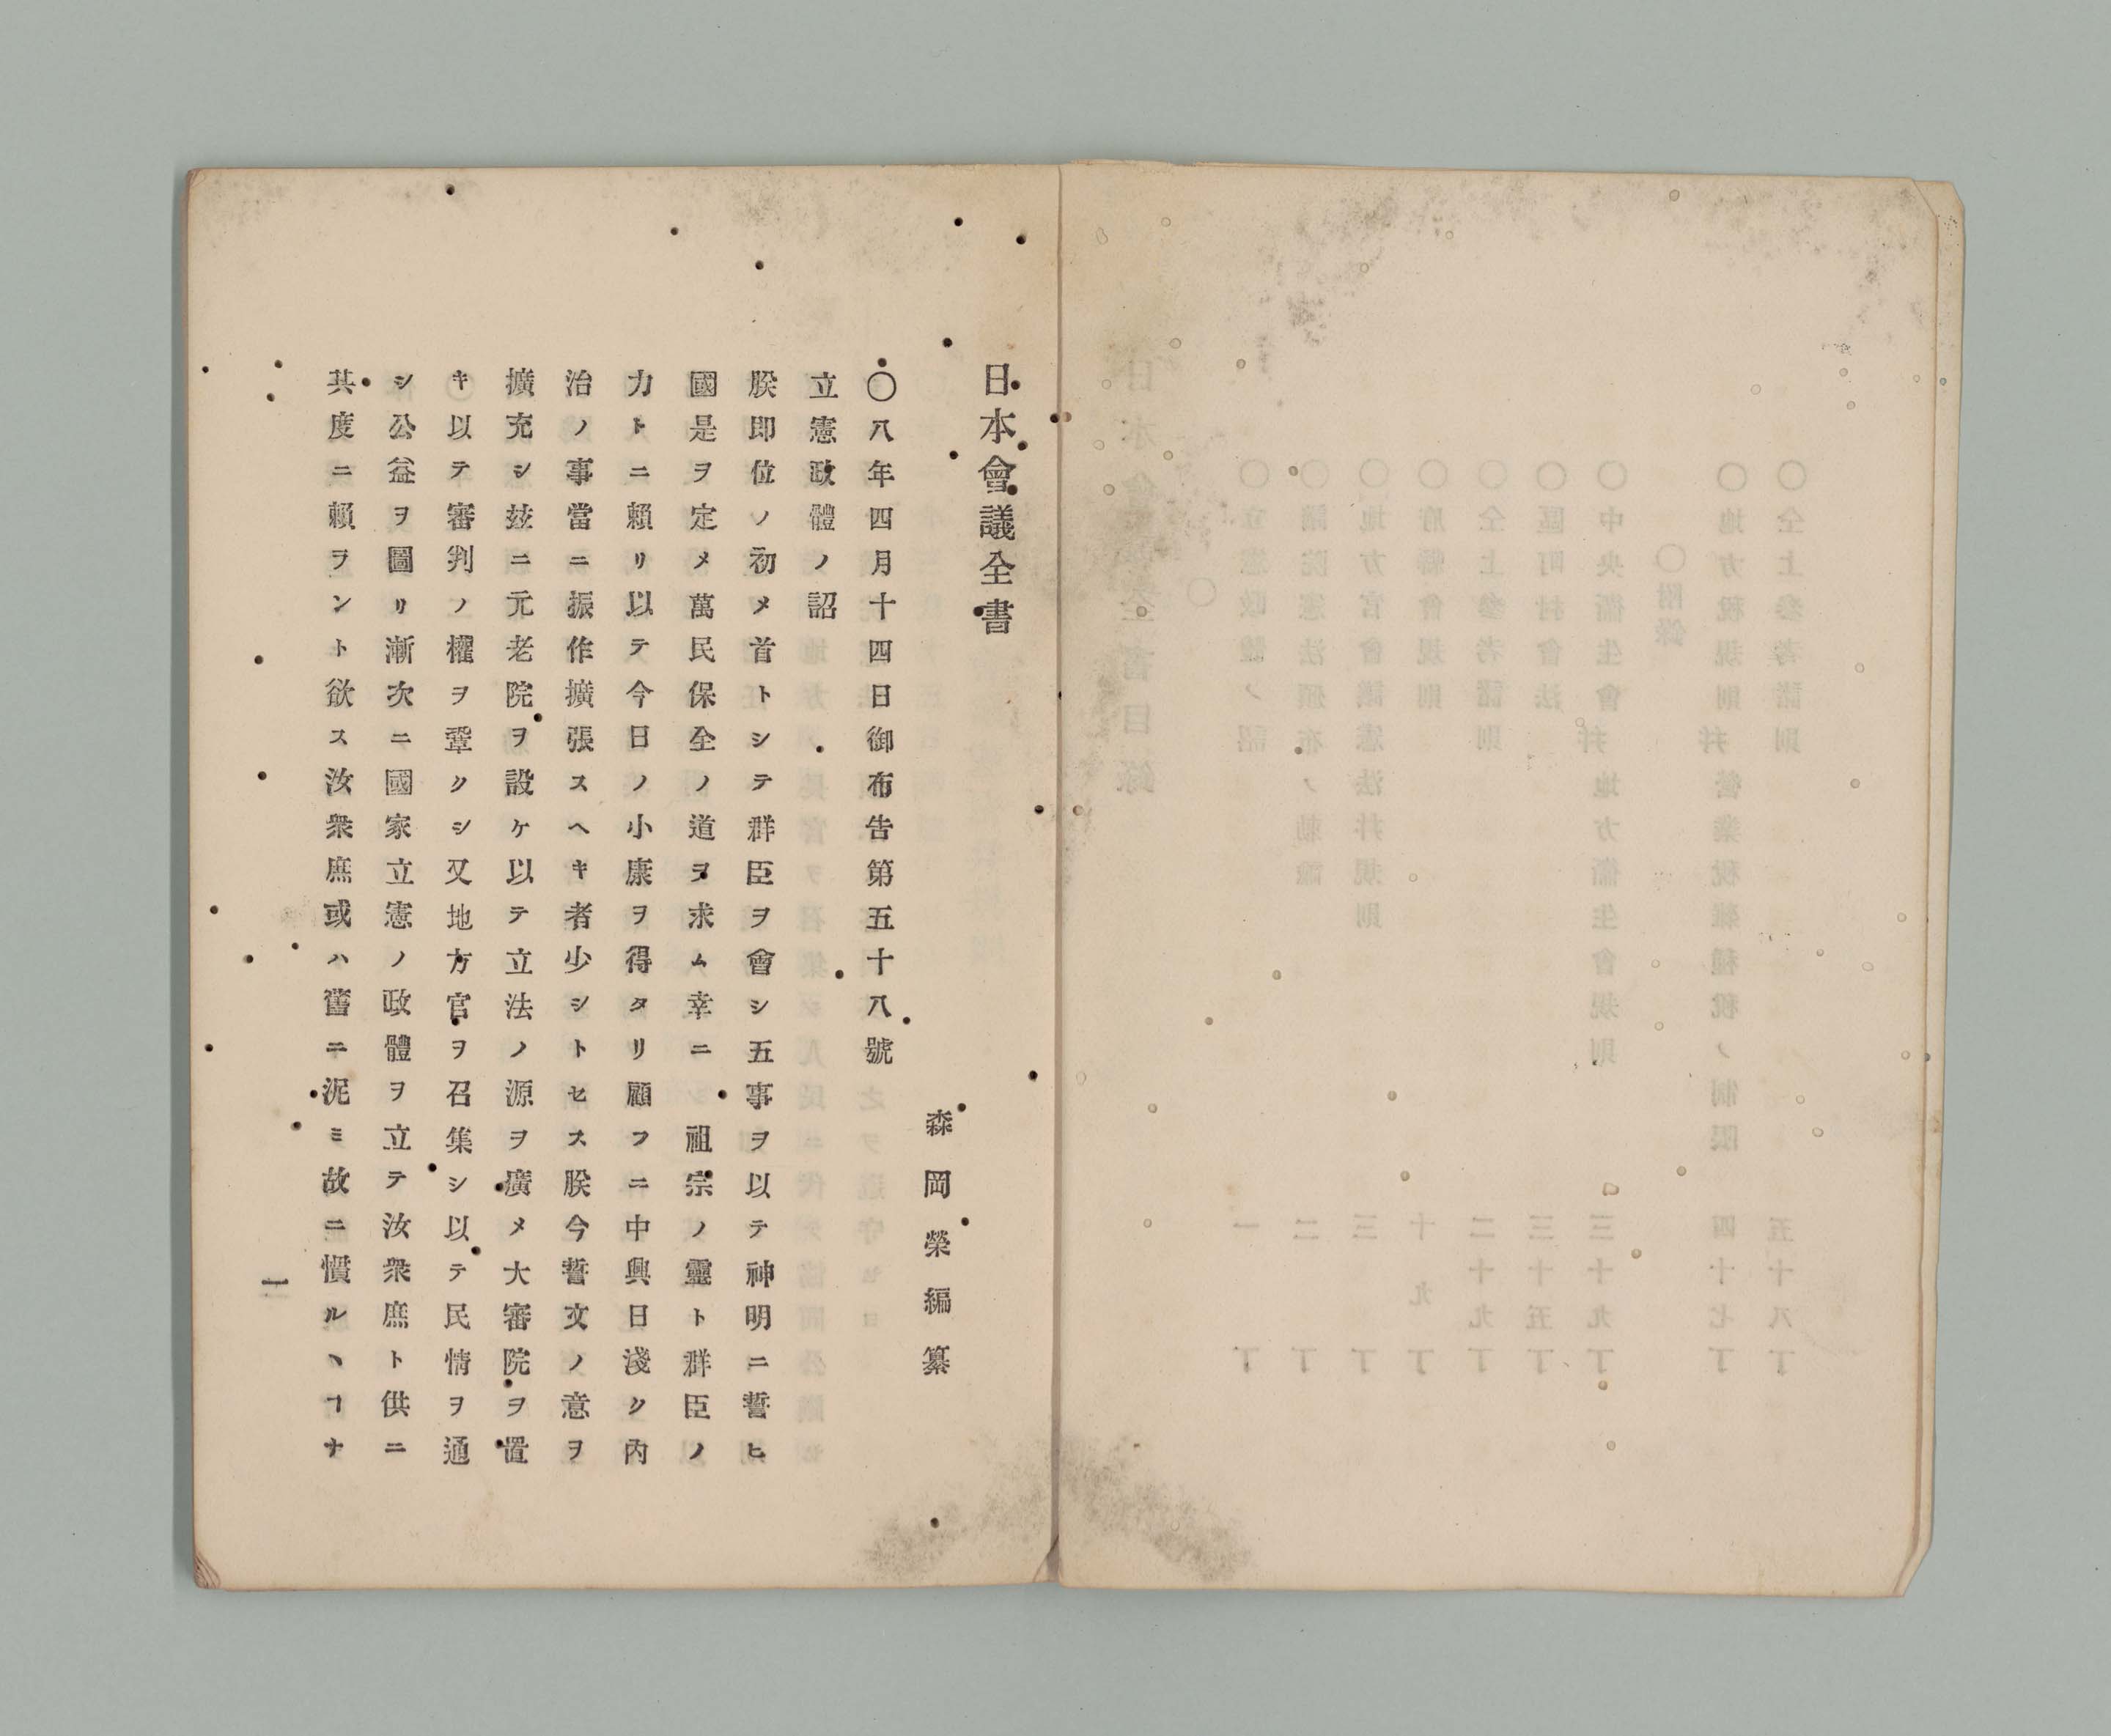 日本會議全書
森岡榮編纂
〇八年四月十四日御布告第五十八號
立憲政體ノ詔
朕即位ノ初メ首トシテ群臣ヲ會シ五事ヲ以テ神明ニ誓ヒ
國是ヲ定メ萬民保全ノ道ヲ求ム幸ニ祖宗ノ靈ト群臣ノ
力トニ賴リ以テ今日ノ小康ヲ得タリ顧フニ中興日淺ク內
治ノ事當ニ振作擴張スヘキ者少シトセス朕今誓文ノ意ヲ
擴充シ玆ニ元老院ヲ設ケ以テ立法ノ源ヲ廣メ大審院ヲ置
キ以テ審判ノ權ヲ鞏クシ又地方官ヲ召集シ以テ民情ヲ通
シ公益ヲ圖リ漸次ニ國家立憲ノ政體ヲ立テ汝衆庶ト供ニ
其度ニ賴ヲント欲ス汝衆庶或ハ舊ニ泥ミ故ニ慣ルヽヿナ
一